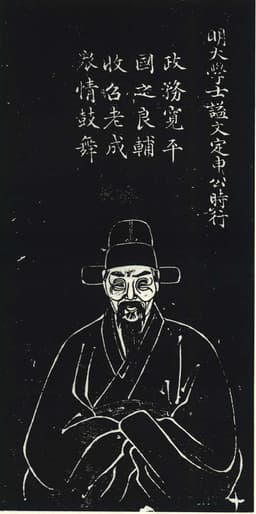 明大學士謚文定申公時行
政務寬平
國之良輔
收召老成
衆情鼓舞